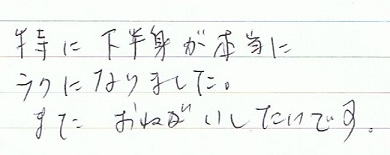 特に下半身が本当に
ラクになりました。
またおねがいしたいです。